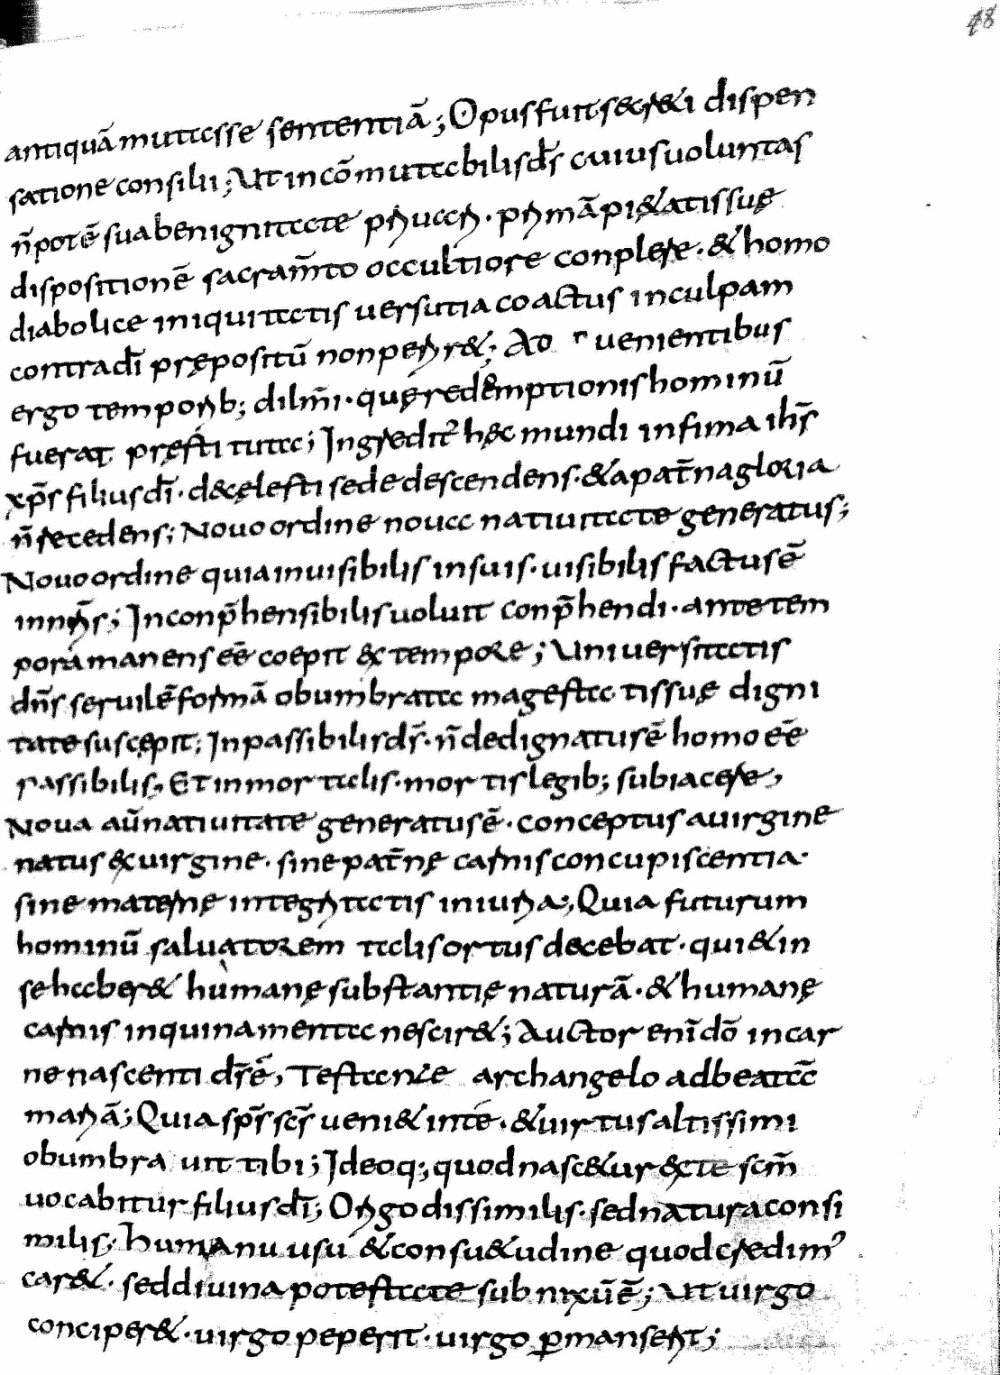 48
antiquā mutasse sententiā; Opus fuit secreti dispen
satione consilii; Ut incōmutabilis d̄s cuius voluntas
n̄ potē sua benignitate priuari. primā pi&atis suę
dispositionē sacram̄to occultiore conplere. & homo
diabolice iniquitatis uersutia coactus in culpam
contra dī prępositū non perir&; Ad uenientibus
ergo temporib; dilm̄i. quę redemptionis hominū
fuerat pręstituta; Ingredit᷑ hęc mundi infima ih̄s
xp̄s filius dī. de cęlesti sede descendens. & a pat̄na gloria
n̄ recedens; Nouo ordine noua natiuitate generatus;
Nouo ordine quia inuisibilis in suis. uisibilis factus ē
in nr̄is; Inconp̄hensibilis uoluit conp̄hendi. ante tem
pora manens eē coepit ex tempore; Uniuersitatis
dn̄s seruilē formā obumbrata magestatis suę digni
tate suscępit; Inpassibilis d̄s. n̄ dedignatus ē homo eē
passibilis, Et inmortalis. mortis legib; subiacere,
Noua aū natiuitate generatus ē. conceptus a uirgine
natus ex uirgine. sine pat̄nę carnis concupiscentia.
sine maternę integritatis iniuria; Quia futurum
hominū saluatorem talis ortus decebat. qui & in
se haber& humanę substantię naturā. & humanę
carnis inquinamenta nescir&; Auctor enī dō in car
ne nascenti d̄s ē, Testante archangelo ad beatā
mariā; Quia sp̄s sc̄s ueni& in te. & uirtus altissimi
obumbrauit tibi; Ideoq; quod nasc&ur ex te sc̄m
uocabitur filius dī; Origo dissimilis. sed natura consi
milis; humanu usu & consu&udine quod credim᷒
car&. sed diuina potestate subnixū ē; Ut uirgo
conciper&. uirgo peperit. uirgo p̄manserit;